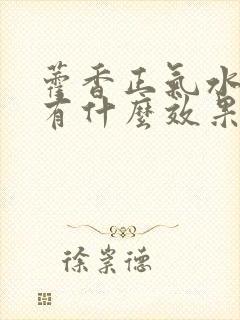 藿香正氣水
有什麼效果
徐崇德